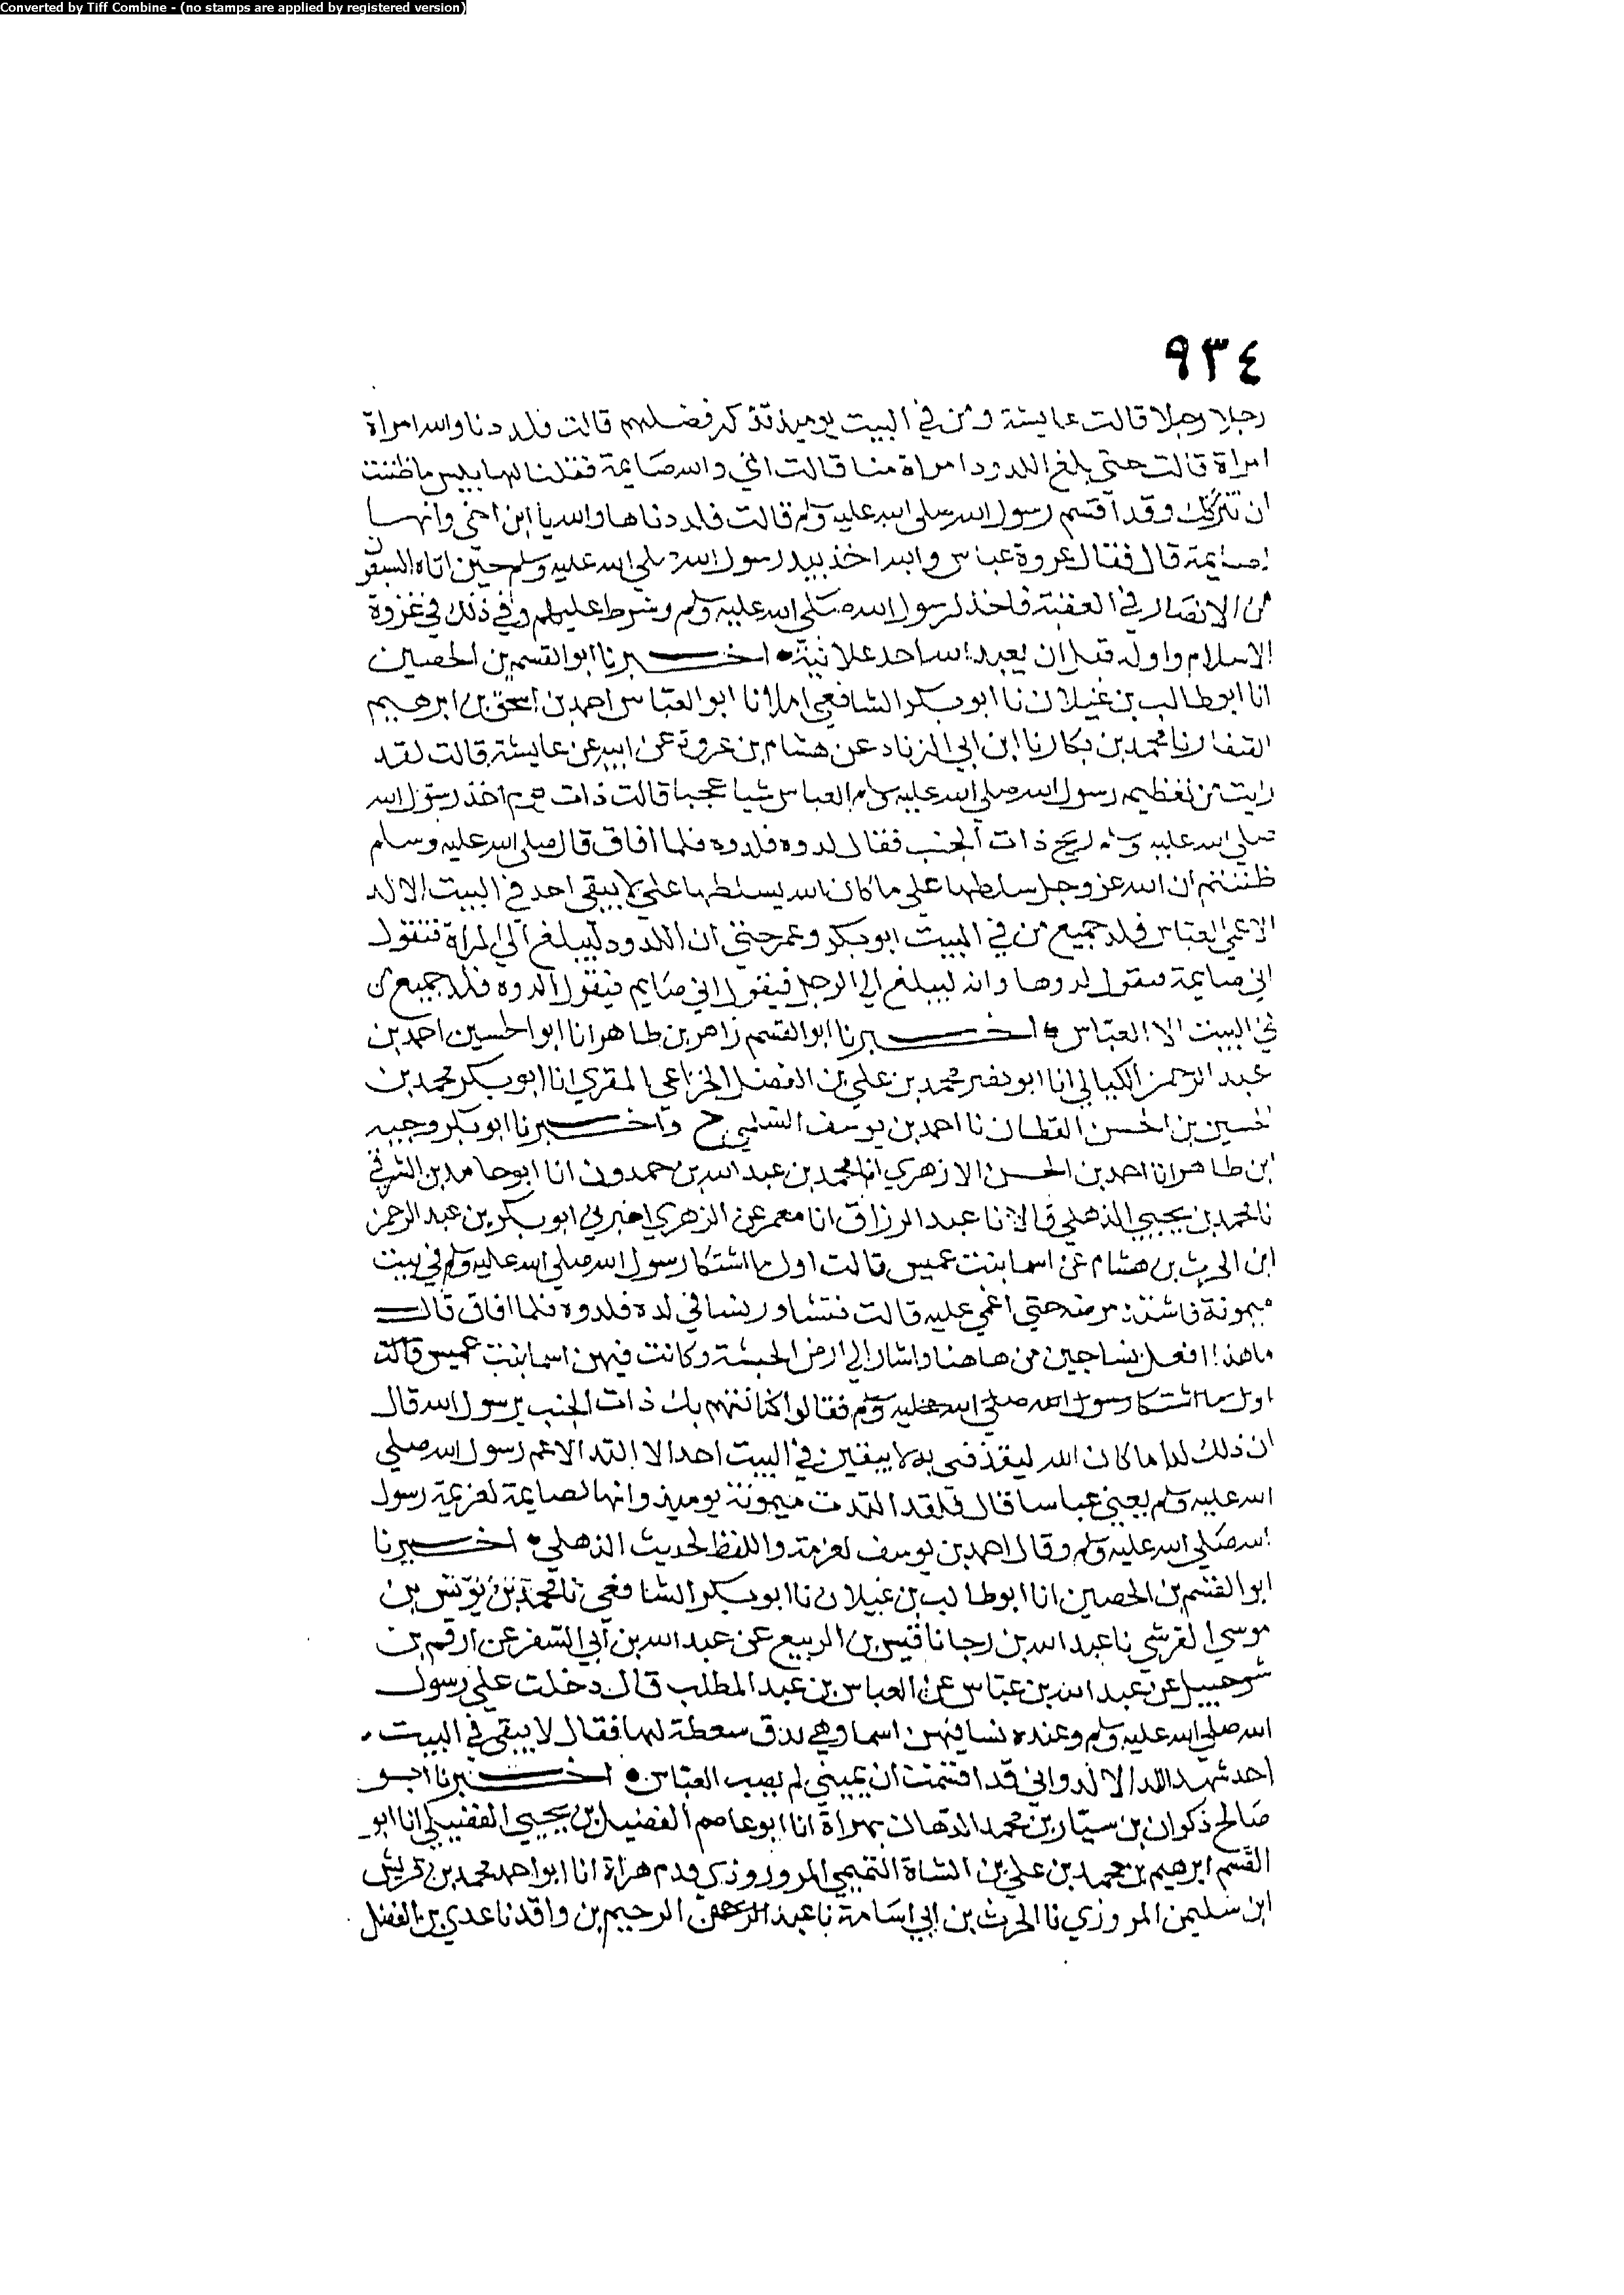 Converted by Tiff Combine - (no stamps are applied by registered version)
٩٣٤
رجلا رجلا قالت عايشة ومن في البيت يوميذ تذكر فضلهم قالت فلددنا والله امراة
امراة قالت حتى بلغ اللدود امراة منا قالت اني والله صايمة فقلنا لها بيس ما ظننت
ان نتركك وقد اقسم رسول الله صلى الله عليه وسلم قالت فلددناها والله يا ابن اختي وانها
لصايمة قال فقال عروة عباس والله اخذ بيد رسول الله صلى الله عليه وسلم حين اتاه السبعون
من الانصار في العقبة فاخذ لرسول الله صلى الله عليه وسلم وشرط عليهم وفي ذلك في غزوة
الاسلام واوله قبل ان يعبد الله احد علانية • اخبرنا ابو القسم بن الحصين
انا ابو طالب بن غيلان نا ابو بكر الشافعي املا نا ابو العباس احمد بن اسحق بن ابرهيم
الصفار نا محمد بن بكار نا ابن ابي الزناد عن هشام بن عروة عن ابيه عن عايشة قالت لقد
رايت من تعظيم رسول الله صلى الله عليه وسلم العباس شيا عجبا قالت ذات يوم اخذ رسول الله
صلى الله عليه وسلم ريح ذات الجنب فقال لدوه فلدوه فلما افاق قال صلى الله عليه وسلم
ظننتم ان الله عز وجل سلطها على ما كان الله يسلطها علي لا يبقى احد في البيت الا لد
الا عمي العباس فلد جميع من في البيت ابو بكر وعمر حتى ان اللدود ليبلغ الى المراة فتقول
اني صايمة فيقول لدوها وانه ليبلغ الى الرجل فيقول اني صايم فيقول لدوه فلد جميع من
في البيت الا العباس • اخبرنا ابو القسم زاهر بن طاهر انا ابو الحسين احمد بن
عبد الرحمن الكيالي انا ابو نصر محمد بن علي بن الفضل الخزاعي المقري انا ابو بكر محمد بن
الحسين بن الحسن القطان نا احمد بن يوسف السلمي ح واخبرنا ابو بكر وجيه
ابن طاهر انا احمد بن الحسن الازهري انا محمد بن عبد الله بن حمدون انا ابو حامد بن الشرقي
نا محمد بن يحيى الذهلي قالا نا عبد الرزاق انا معمر عن الزهري اخبرني ابو بكر بن عبد الرحمن
ابن الحرث بن هشام عن اسما بنت عميس قالت اول ما اشتكا رسول الله صلى الله عليه وسلم في بيت
ميمونة فاشتد مرضه حتى اغمي عليه قالت فتشاور نساؤه في لده فلدوه فلما افاق قال
ما هذا افعل نسا جين من هاهنا واشار الى ارض الحبشة وكانت فيهن اسما بنت عميس قالت
اول ما اشتكا رسول الله صلى الله عليه وسلم فقالوا كنا نتهم بك ذات الجنب يرسول الله قال
ان ذلك لدا ما كان الله ليقذفني به لا يبقين في البيت احد الا التد الا عم رسول الله صلى
الله عليه وسلم يعني عباسا قال فلقد التدت ميمونة يوميذ وانها لصايمة لعزيمة رسول
الله صلى الله عليه وسلم وقال احمد بن يوسف لعزمة واللفظ لحديث الذهلي • اخبرنا
ابو القسم بن الحصين انا ابو طالب بن غيلان نا ابو بكر الشافعي نا محمد بن يونس بن
موسى القرشي نا عبد الله بن رجا نا قيس بن الربيع عن عبد الله بن ابي السفر عن ارقم بن
شرحبيل عن عبد الله بن عباس عن العباس بن عبد المطلب قال دخلت على رسول
الله صلى الله عليه وسلم وعنده نسا فيهن اسما وهي تدق سعطة لها فقال لا يبقى في البيت
احد شهد اللد الا لد واني قد اقسمت ان يميني لم يصب العباس • اخبرنا ابو
صالح ذكوان بن سيار بن محمد الدهان بهراة انا ابو عاصم الفضيل بن يحيى الفضيلي انا ابو
القسم ابرهيم بن محمد بن علي بن الشاة التميمي المروروذي قدم هراة انا ابو احمد محمد بن قريش
ابن سليمن المروزي نا الحرث بن ابي اسامة نا عبد الرحمن الرحيم بن واقد نا عدي بن الفضل